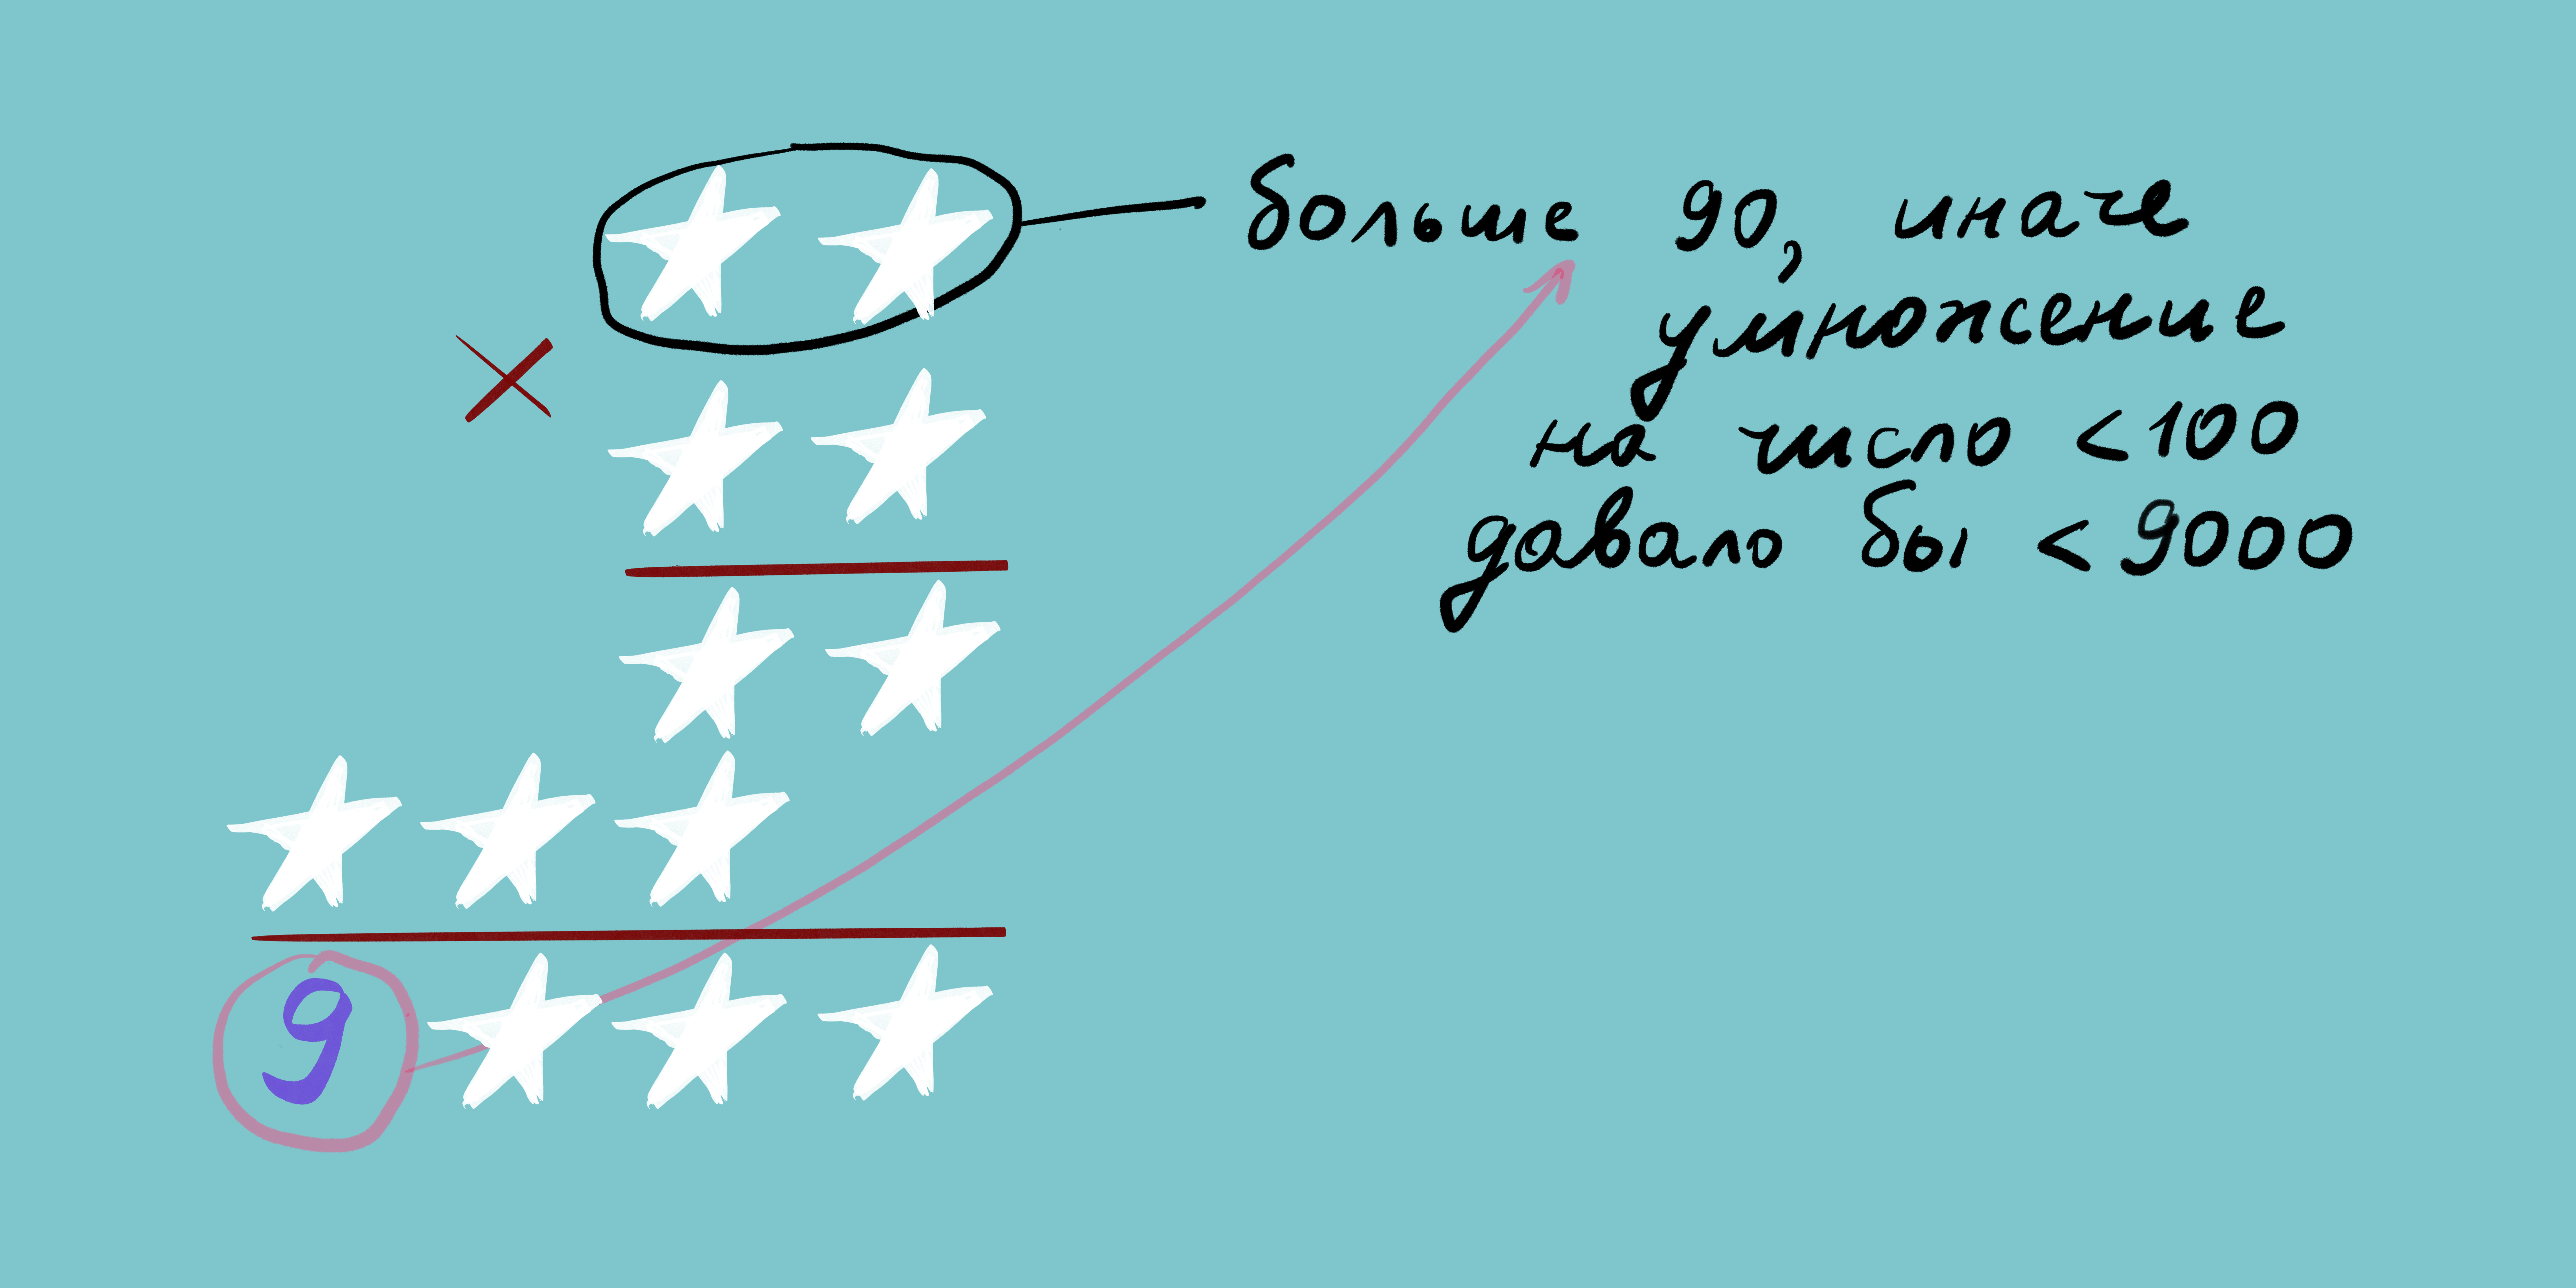 больше 90, иначе
умножение
на число <100
давало бы <9000
×
9